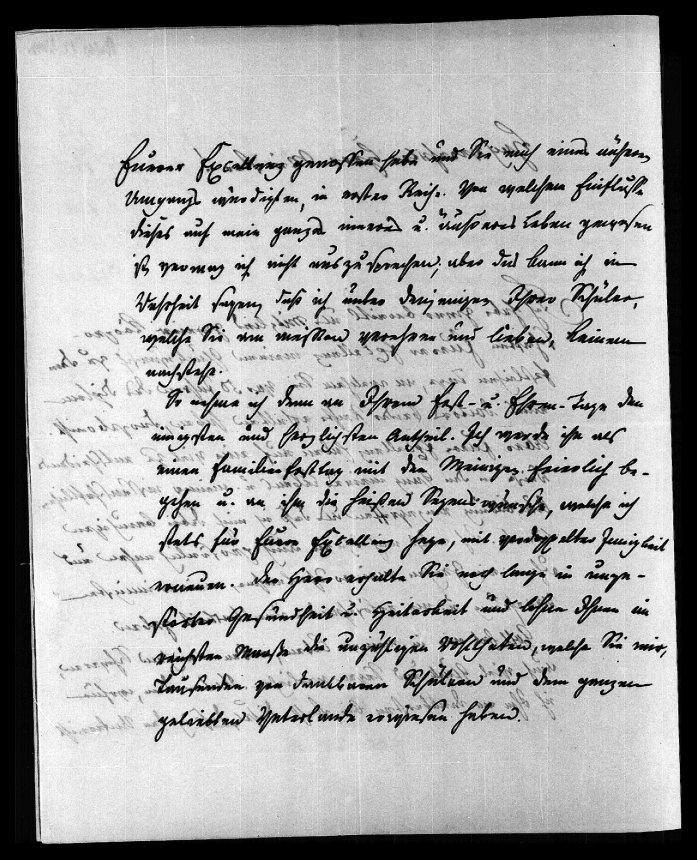 Eurer Excellenz genossen habe und Sie mich eines näheren
Umgangs würdigten, in erster Reihe. Von welchem Einflusse
dieses auf mein ganzes inneres u. äußeres Leben gewesen
ist, vermag ich nicht auszusprechen, aber das kann ich in
Wahrheit sagen, daß ich unter denjenigen Ihrer Schüler,
welche Sie am meisten verehren und lieben, keinem
nachstehe.
So nehme ich denn an Ihrem Fest- u. Ehren-Tage den
innigsten und herzlichsten Antheil. Ich werde ihn als
einen Familienfesttag mit den Meinigen feierlich be-
gehen u. an ihm die heißen Segenswünsche, welche ich
stets für Eure Excellenz hege, mit verdoppelter Innigkeit
erneuen. Der Herr erhalte Sie noch lange in unge-
störter Gesundheit u. Heiterkeit und lohne Ihnen im
reichsten Maaße die unzähligen Wohlthaten, welche Sie mir,
Tausenden von dankbaren Schülern und dem ganzen
geliebten Vaterlande erwiesen haben.